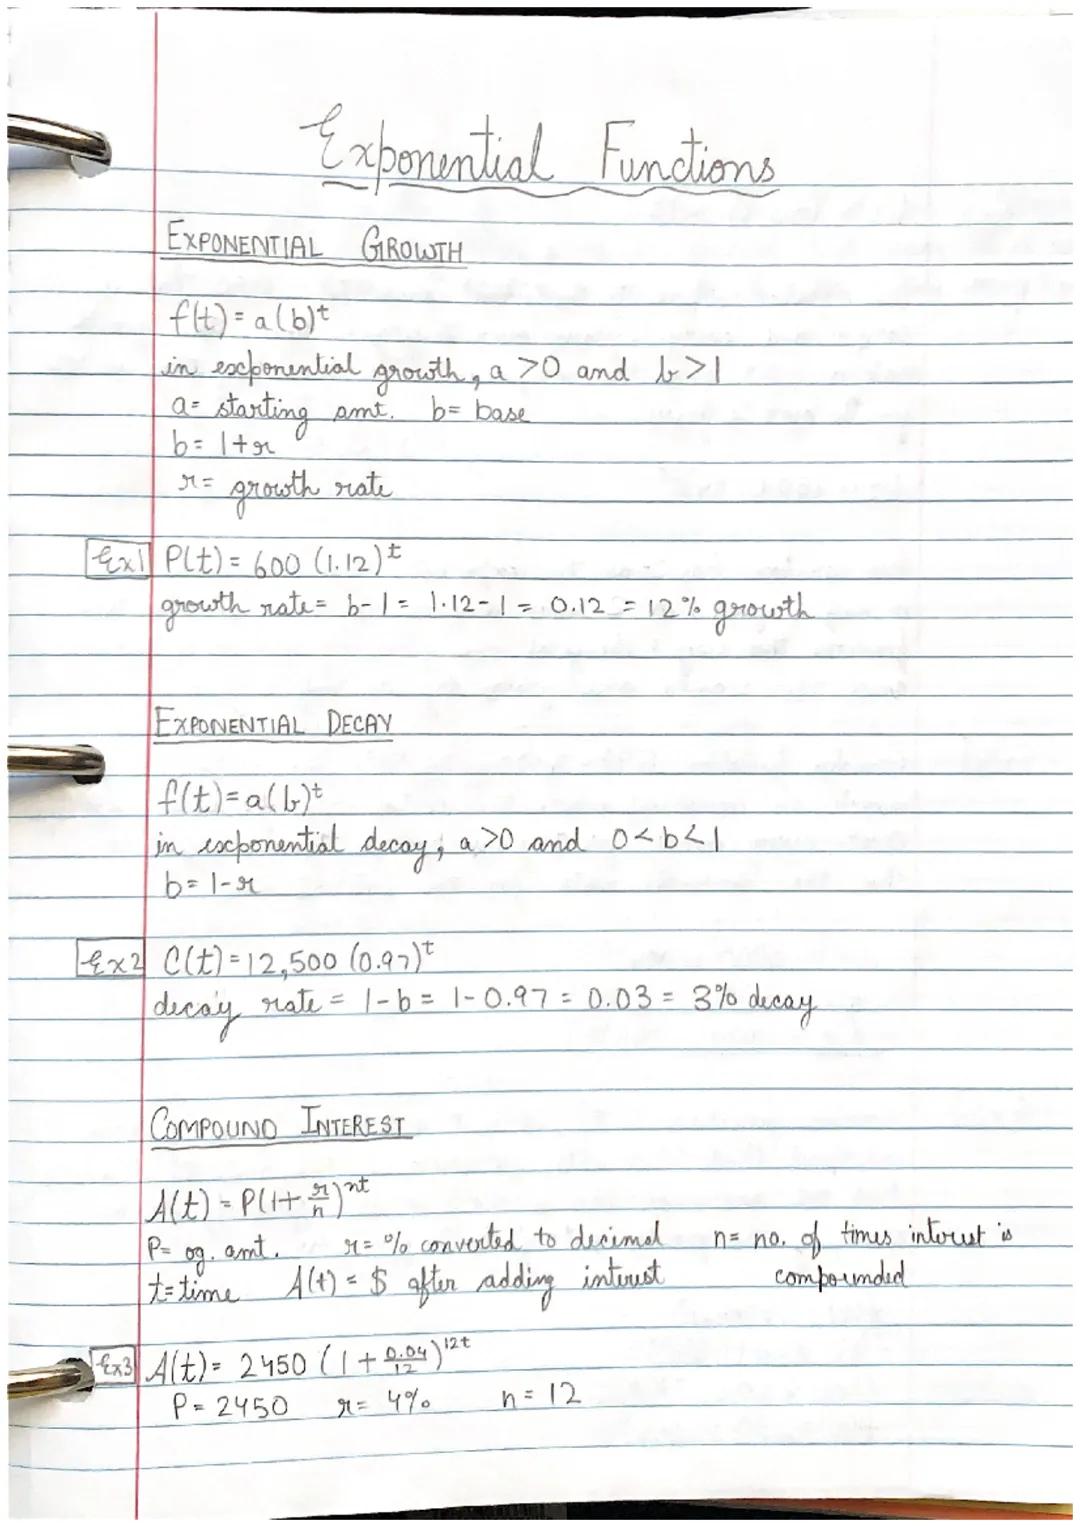 Exponential Functions
EXPONENTIAL GROWTH
f(t) = a(b)^t
in exponential growth, a >0 and b>1
a= starting amt. b= base
b= 1+r
r= growth rate
Ex1 P(t) = 600 (1.12)^t
growth rate = b-1 = 1.12-1 = 0.12 = 12% growth
EXPONENTIAL DECAY
f(t)=a(b)^t
in exponential decay, a>0 and 0<b<1
b= 1-r
Ex2 C(t) = 12,500 (0.97)^t
decay rate = 1-b = 1-0.97 = 0.03 = 3% decay
COMPOUND INTEREST
A(t) = P(1+ r/n)^nt
P= og. amt. r= % converted to decimal n= no. of times interest is
t=time A(t) = $ after adding interest compounded
Ex3 A(t)= 2450 (1+ 0.04/12)^12t
P= 2450 r= 4% n= 12